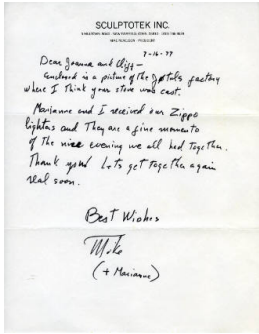 SCULPTOTEK INC.
7-16-99
Dear Joanna and Cliff-
Enclosed is a picture of the Jøtuls factory
where I think your stove was cast.
Marianne and I received our Zippo
lighters and They are a fine momento
of the nice evening we all had together.
Thank you! Lets get together again
real soon.
Best Wishes
Mike
(+ Marianne)